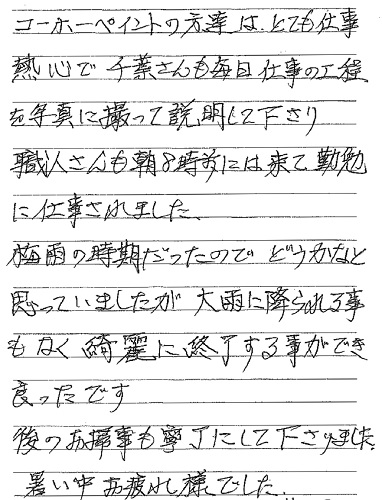 コーホーペイントの方達は、とても仕事
熱心で千葉さんも毎日仕事の工程
を写真に撮って説明して下さり
職人さんも朝8時前には来て勤勉
に仕事されました。
梅雨の時期だったのでどうかなと
思っていましたが大雨に降られる事
もなく綺麗に終了する事ができ
良ったです
後のお掃事も寧丁にして下さりました
暑い中お疲れ様でした。